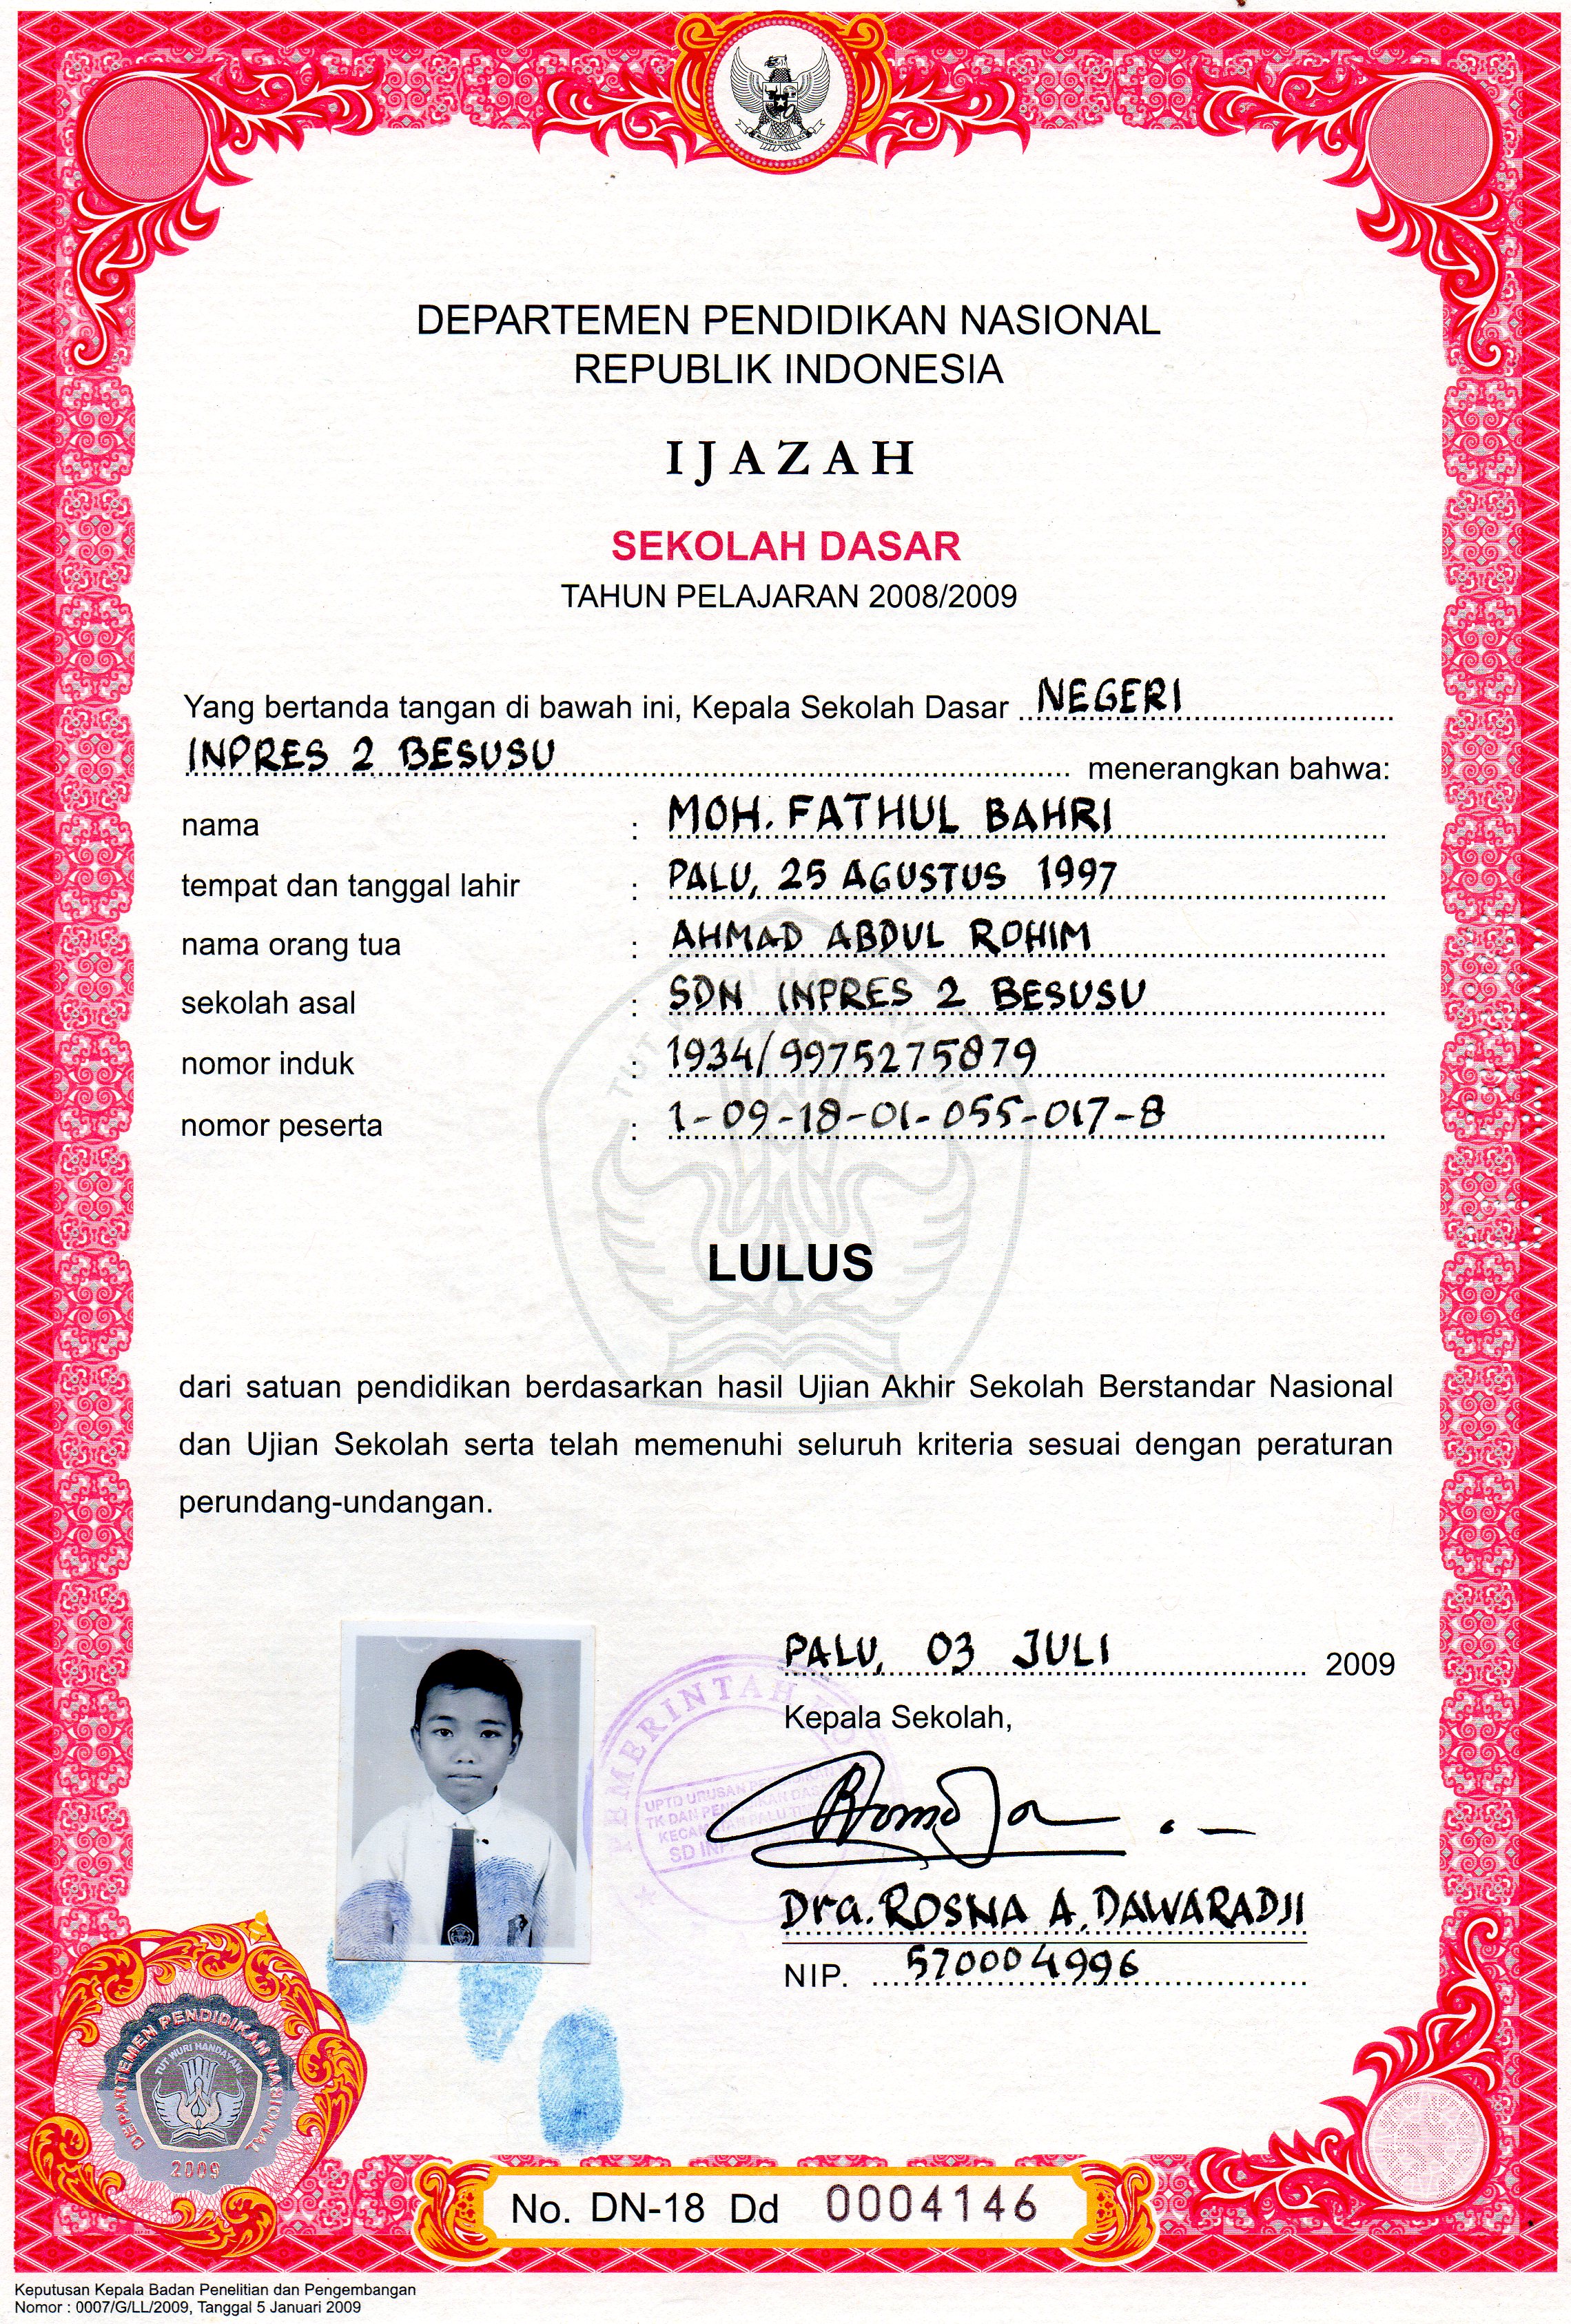 DEPARTEMEN PENDIDIKAN NASIONAL
REPUBLIK INDONESIA
IJAZAH
SEKOLAH DASAR
TAHUN PELAJARAN 2008/2009
Yang bertanda tangan di bawah ini, Kepala Sekolah Dasar NEGERI
INPRES 2 BESUSU menerangkan bahwa:
nama : MOH. FATHUL BAHRI
tempat dan tanggal lahir : PALU, 25 AGUSTUS 1997
nama orang tua : AHMAD ABDUL ROHIM
sekolah asal : SDN INPRES 2 BESUSU
nomor induk : 1934/9975275879
nomor peserta : 1-09-18-01-055-017-8
TUT WURI HANDAYANI
LULUS
dari satuan pendidikan berdasarkan hasil Ujian Akhir Sekolah Berstandar Nasional
dan Ujian Sekolah serta telah memenuhi seluruh kriteria sesuai dengan peraturan
perundang-undangan.
PALU, 03 JULI 2009
Kepala Sekolah,
PEMERINTAH KO
UPTD URUSAN
TK DAN
KECAMATAN PALU
SD IN
Dra. ROSNA A. DAWARADJI
NIP. 570004996
DEPARTEMEN PENDIDIKAN NASIONAL
TUT WURI HANDAYANI
2009
No. DN-18 Dd 0004146
Keputusan Kepala Badan Penelitian dan Pengembangan
Nomor : 0007/G/LL/2009, Tanggal 5 Januari 2009